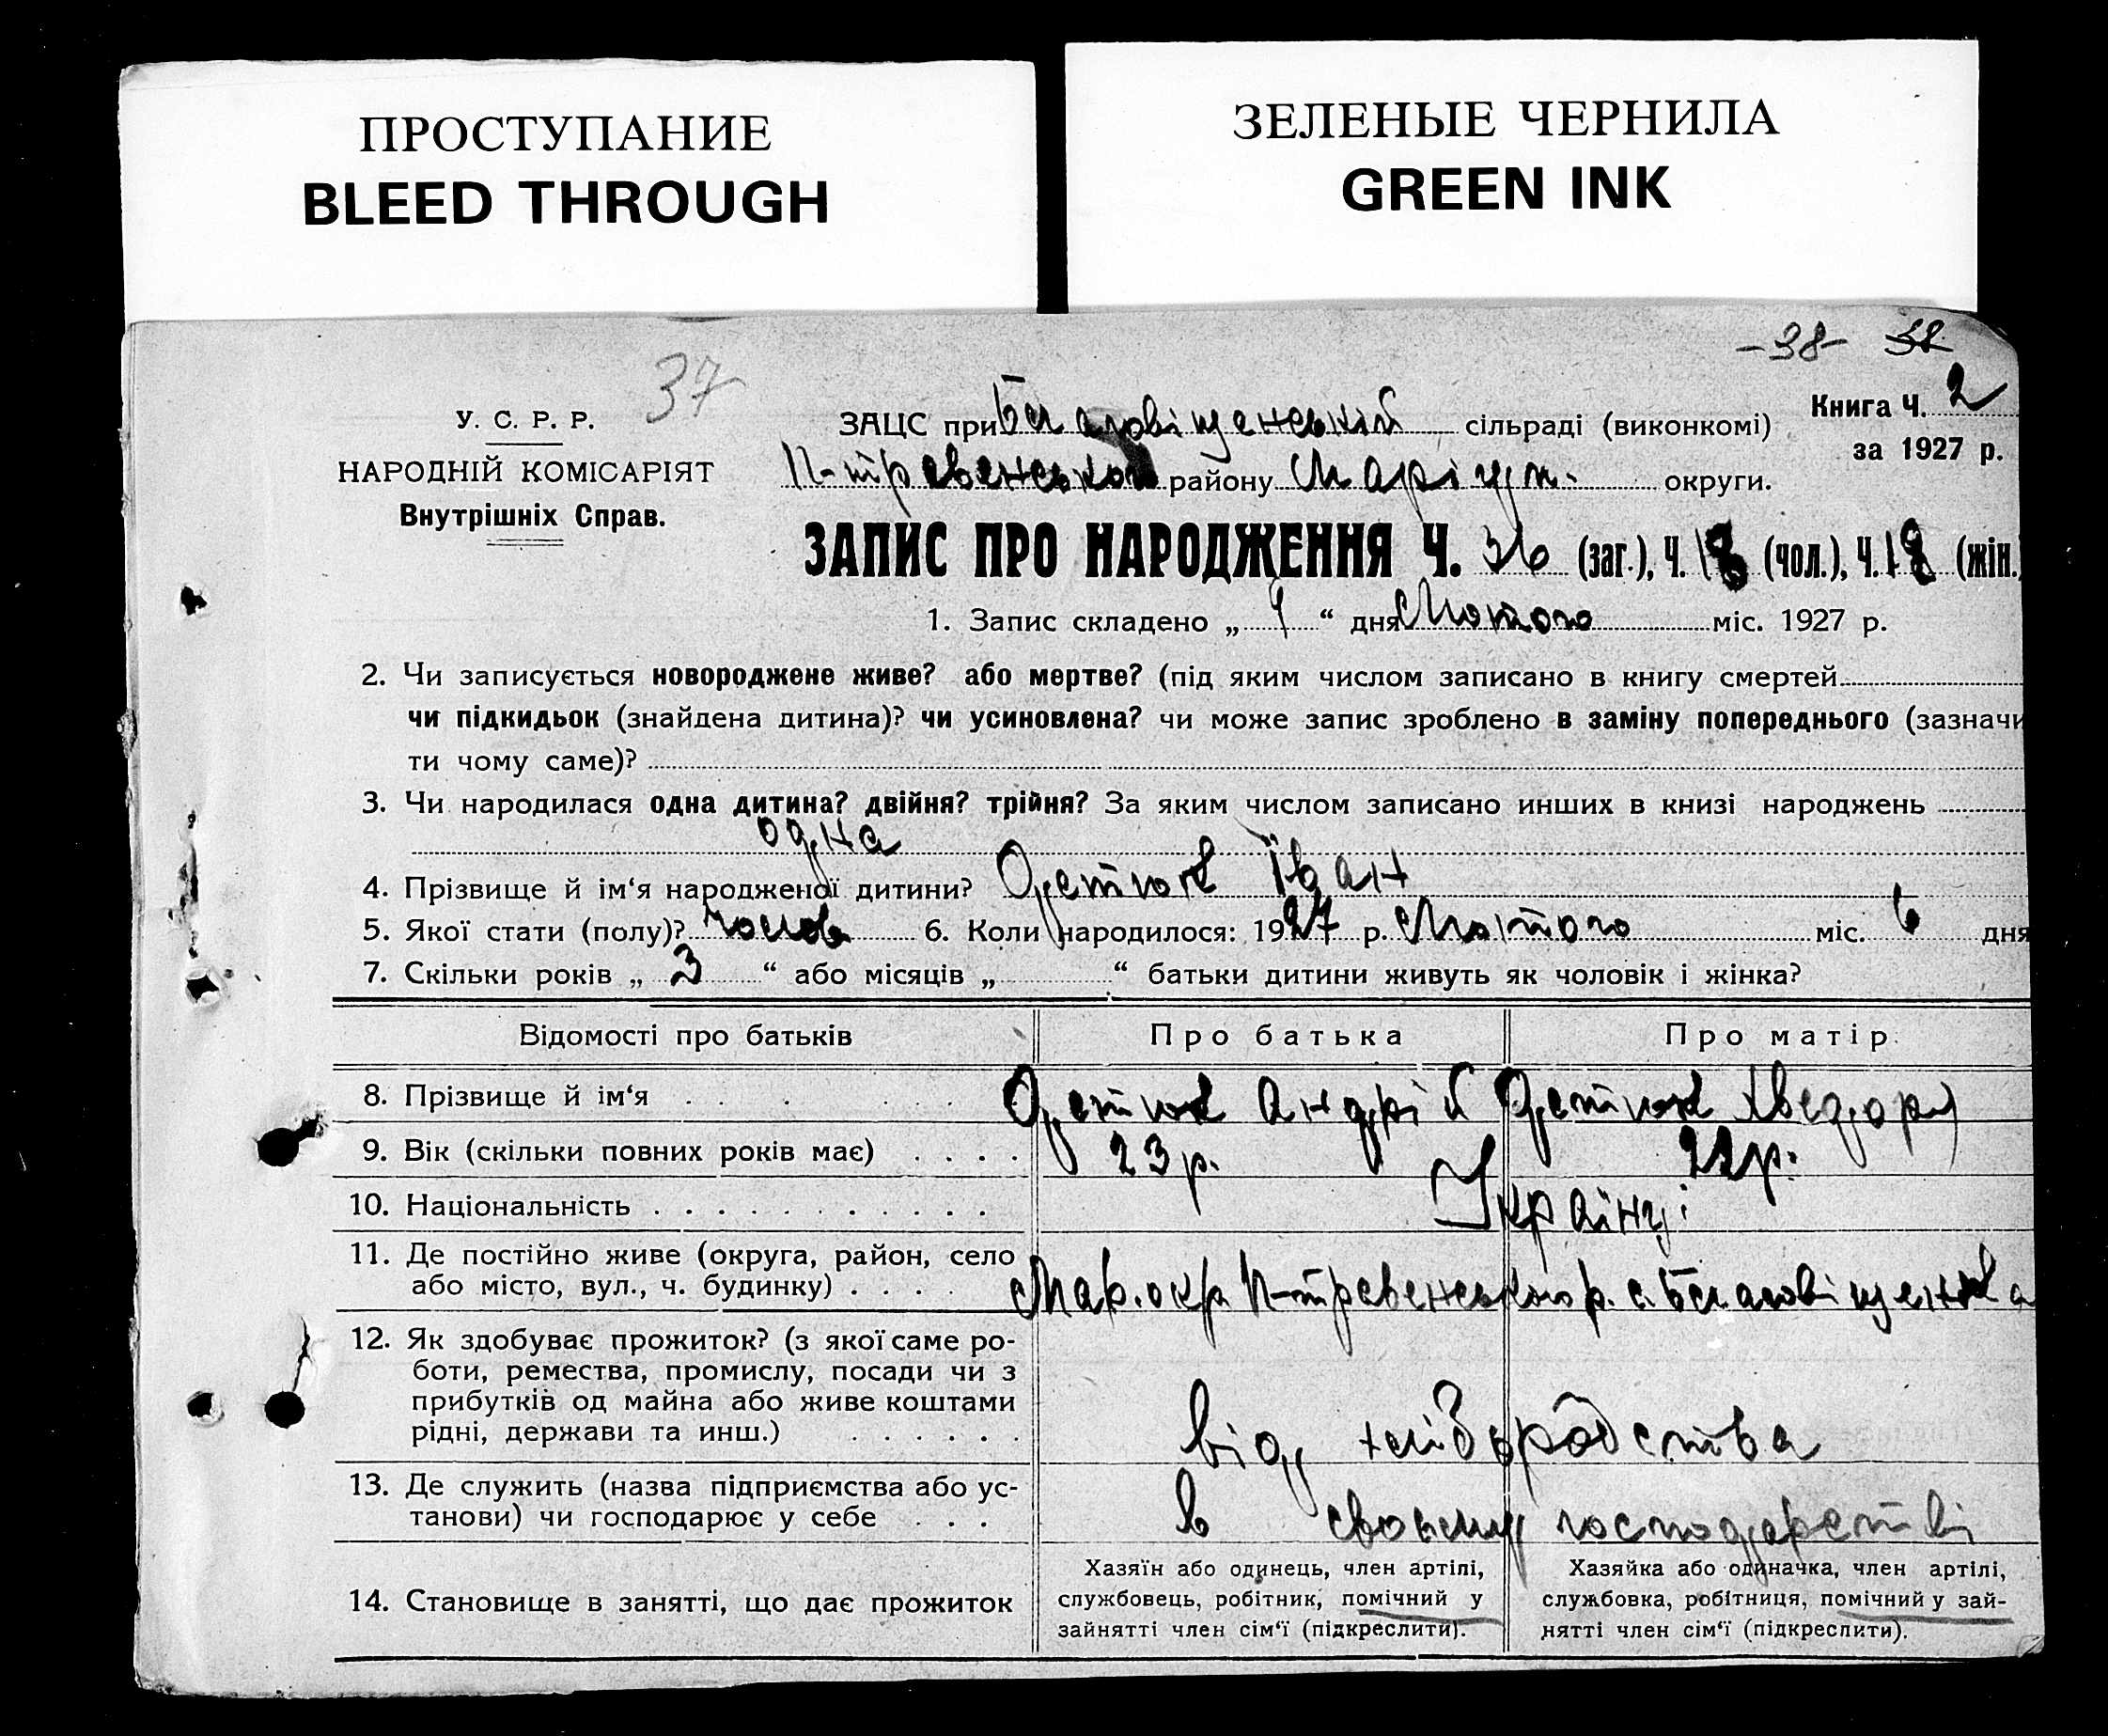 ПРОСТУПАНИЕ
BLEED THROUGH
ЗЕЛЕНЫЕ ЧЕРНИЛА
GREEN INK
-38- 38
37
У. С. Р. Р.
НАРОДНІЙ КОМІСАРІЯТ
Внутрішніх Справ.
Книга Ч. 2
за 1927 р.
ЗАЦС при Благовіщенській сільраді (виконкомі)
району Маріуп. округи.
ЗАПИС ПРО НАРОДЖЕННЯ Ч. 36 (заг.), Ч. 18 (чол.), Ч. 18 (жін.)
1. Запис складено „ 9 “ дня Лютого міс. 1927 р.
2. Чи записується новороджене живе? або мертве? (під яким числом записано в книгу смертей
чи підкидьок (знайдена дитина)? чи усиновлена? чи може запис зроблено в заміну попереднього (зазначи
ти чому саме)?
3. Чи народилася одна дитина? двійня? трійня? За яким числом записано инших в книзі народжень
одна
4. Прізвище й ім‘я народженої дитини? Іван
5. Якої стати (полу)? чолов 6. Коли народилося: 1927 р. Лютого міс. 6 дня
7. Скільки років „ 3 “ або місяців „ “ батьки дитини живуть як чоловік і жінка?
Відомості про батьків Про батька Про матір
8. Прізвище й ім‘я Андрій Хведора
9. Вік (скільки повних років має) 23 р. 22 р.
10. Національність Українці
11. Де постійно живе (округа, район, село
або місто, вул., ч. будинку) Мар. окр. р. с. Благовіщенка
12. Як здобуває прожиток? (з якої саме ро-
боти, ремества, промислу, посади чи з
прибутків од майна або живе коштами
рідні, держави та инш.) від хліборобства
13. Де служить (назва підприємства або ус-
танови) чи господарює у себе в своьму господарстві
14. Становище в занятті, що дає прожиток
Хазяїн або одинець, член артілі,
службовець, робітник, помічний у
зайнятті член сім‘ї (підкреслити).
Хазяйка або одиначка, член артілі,
службовка, робітниця, помічний у зай-
нятті член сім‘ї (підкреслити).